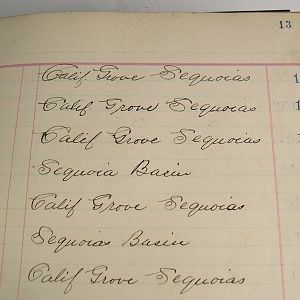 13
Calif Grove Sequoias
Calif Grove Sequoias
Calif Grove Sequoias
Sequoia Basin
Calif Grove Sequoias
Sequoias Basin
Calif Grove Sequoias